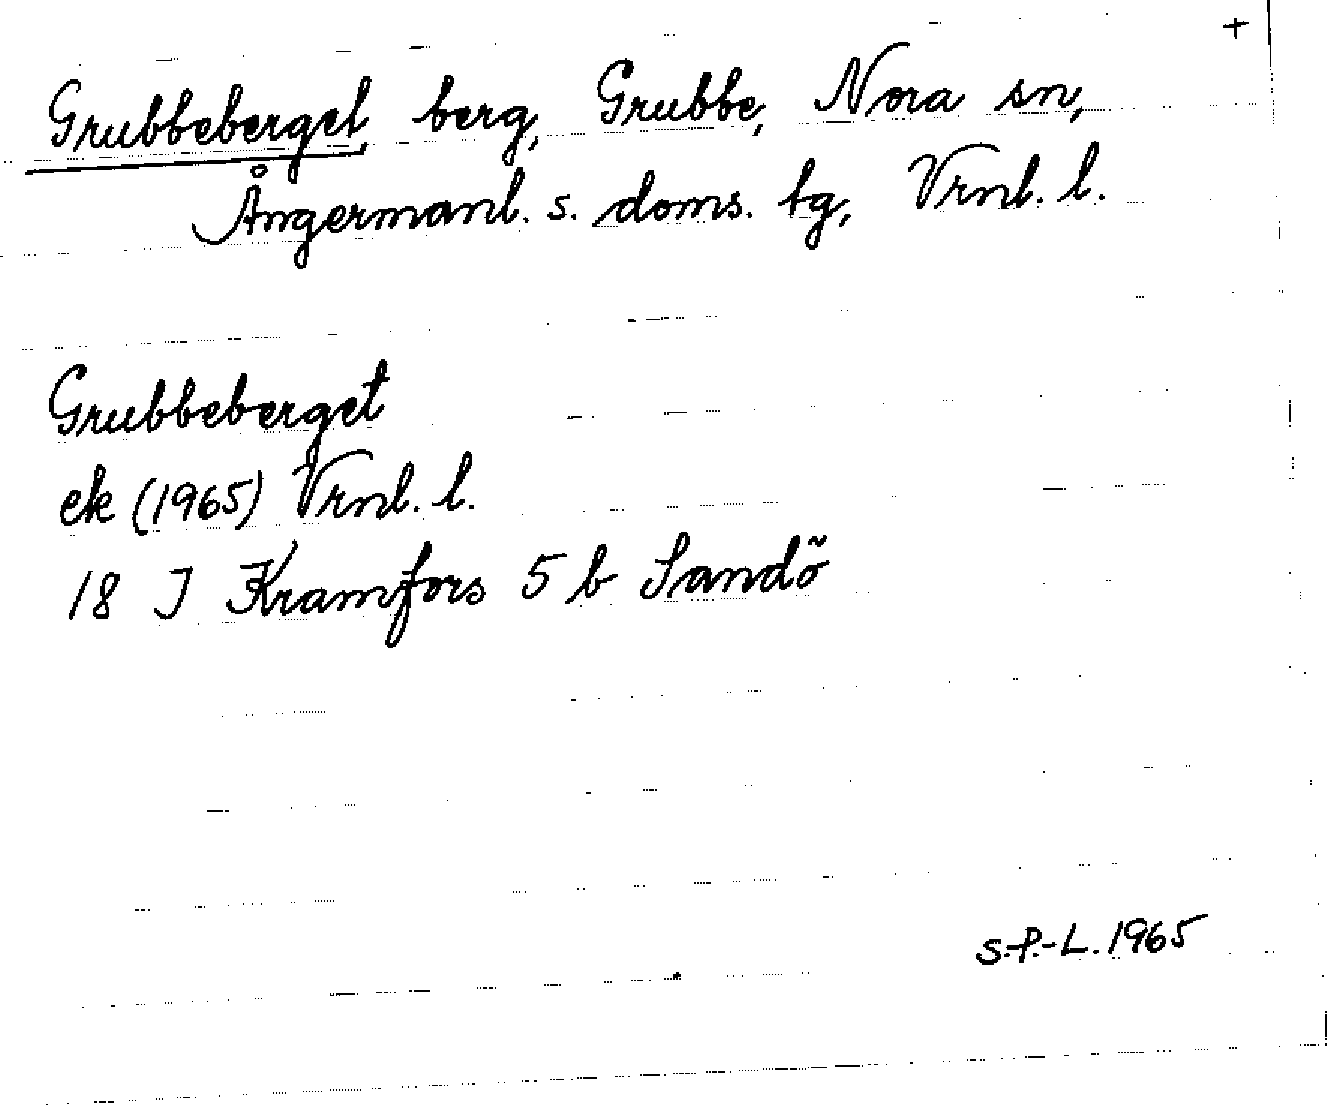 +
Grubbeberget, berg, Grubbe, Nora sn,
Ångermanl. s. doms. tg, Vrnl. l.
Grubbeberget
ek (1965) Vrnl. l.
18 J Kramfors 5 b Sandö
S.-P.-L. 1965